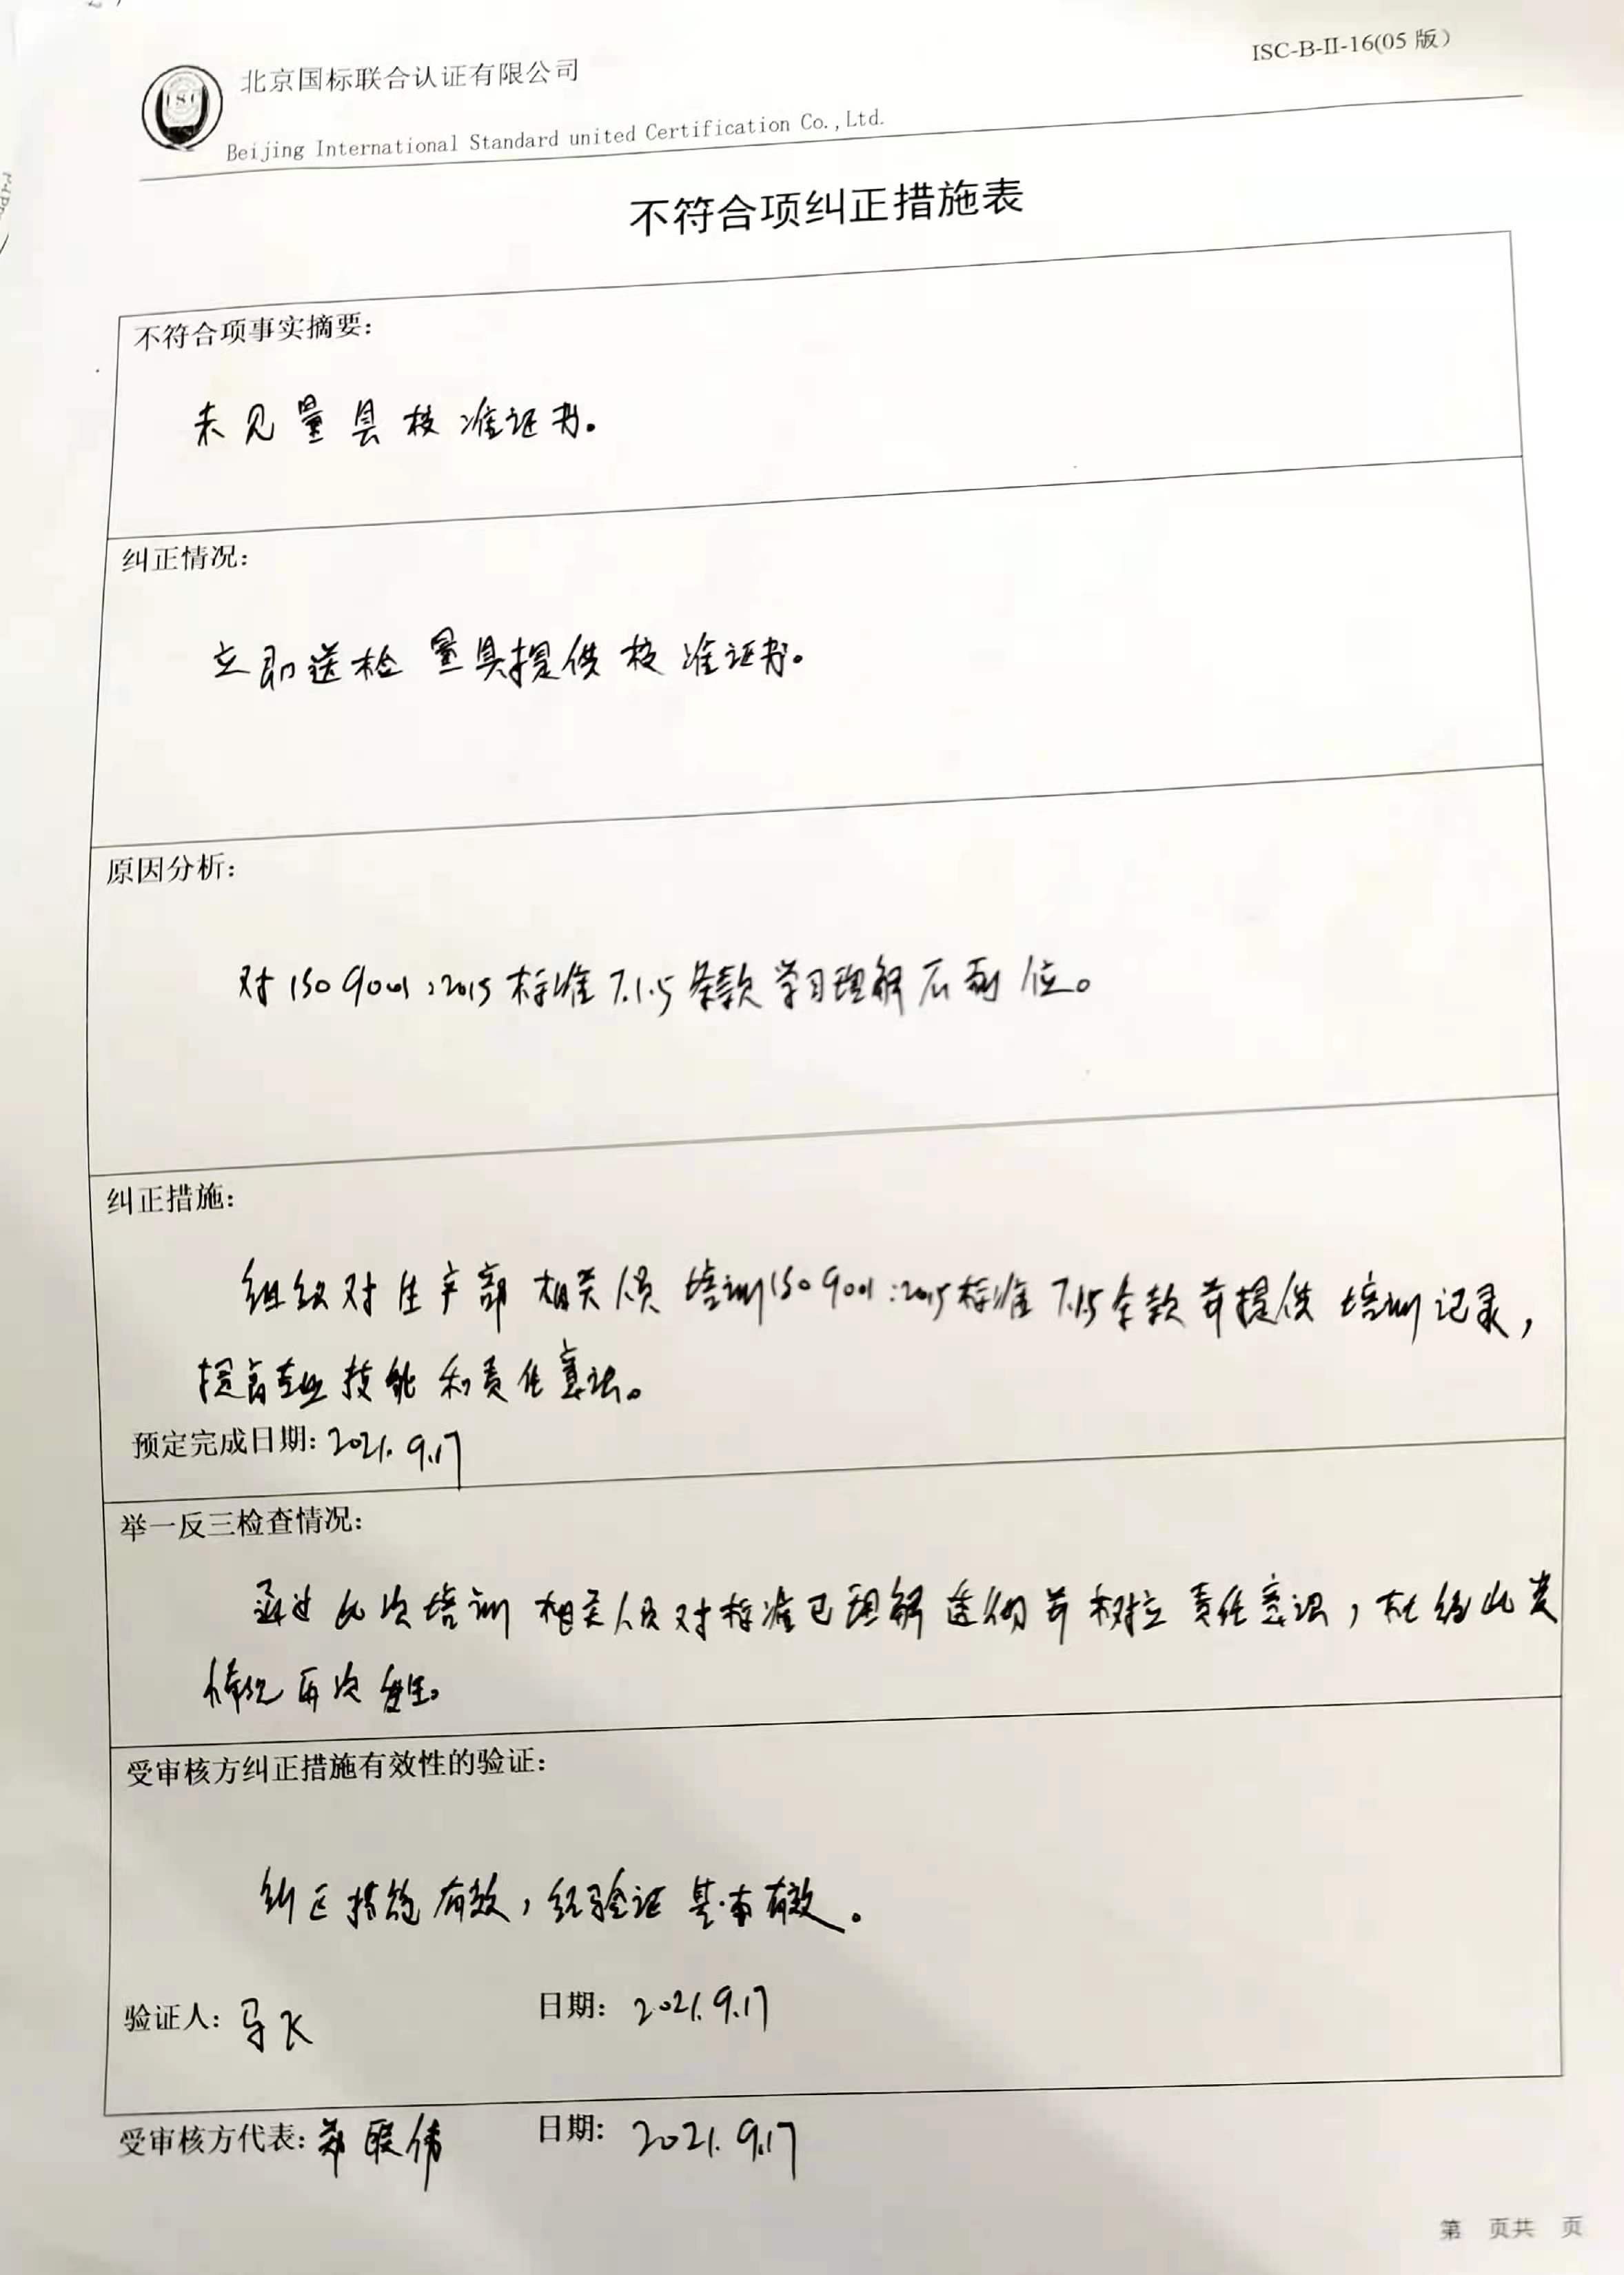 ISC-B-II-16(05 版)
北京国标联合认证有限公司
Beijing International Standard united Certification Co.,Ltd.
不符合项纠正措施表
不符合项事实摘要：
未见量具校准证书。
纠正情况：
立即送检量具提供校准证书。
原因分析：
对ISO9001:2015标准7.1.5条款学习理解不到位。
纠正措施：
组织对生产部相关人员培训ISO9001:2015标准7.1.5条款并提供培训记录，
提高专业技能和责任意识。
预定完成日期：2021.9.17
举一反三检查情况：
通过此次培训相关人员对标准已理解透彻并树立责任意识，杜绝此类
情况再次发生。
受审核方纠正措施有效性的验证：
纠正措施有效，经验证基本有效。
验证人：马飞 日期：2021.9.17
受审核方代表：郑联伟 日期：2021.9.17
第 页共 页